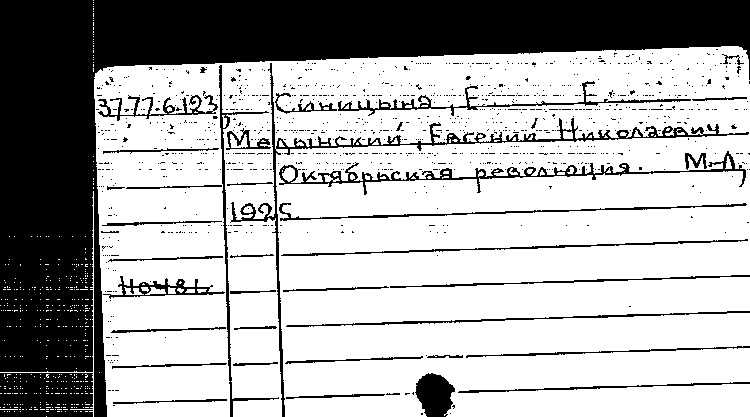 37.77.6.123, Синицына, Е. Е.
Медынский, Евгений Николаевич.
Октябрьская революция. М.-Л.,
1925.